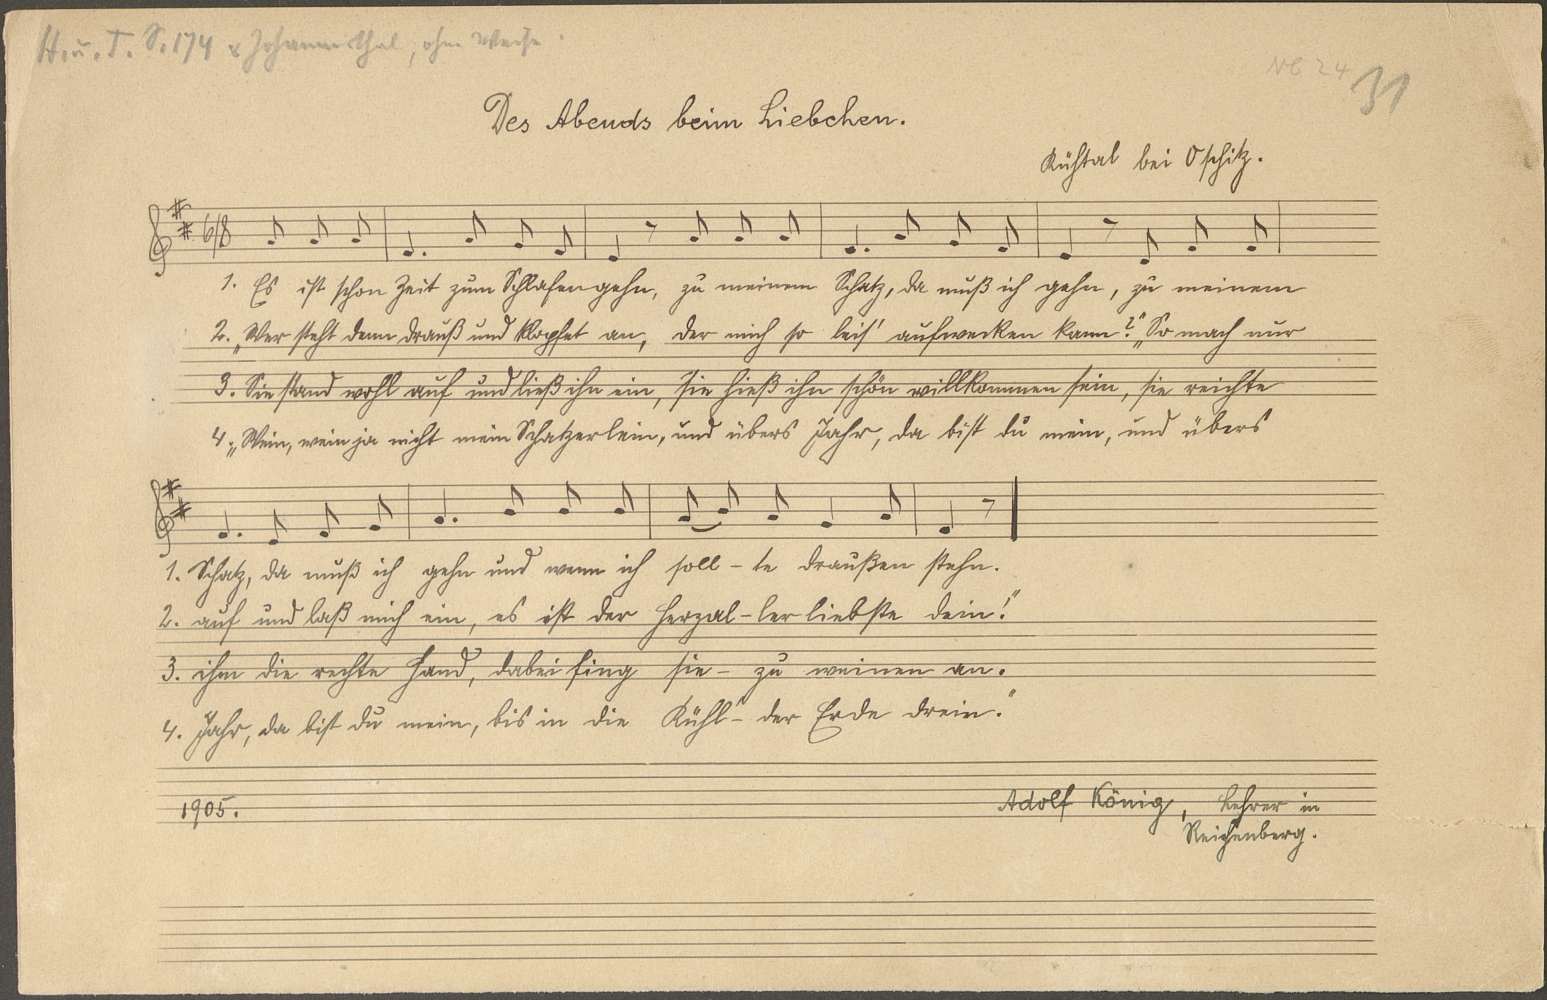 H. u. T. S. 174 Johannesthal, ohne Weise.
NB 24 31
Des Abends beim Liebchen.
Kühtal bei Oschitz.
6/8
1. Es ist schon Zeit zum Schlafengehn, zu meinem Schatz, da muß ich gehn, zu meinem
2. „Wer steht denn drauß und klopfet an, der mich so leis' aufwecken kann?" „So mach nur
3. Sie stand wohl auf und ließ ihn ein, sie hieß ihn schön willkommen sein, sie reichte
4. „Wein, wein ja nicht mein Schatzerlein, und übers Jahr, da bist du mein, und übers
1. Schatz, da muß ich gehn und wenn ich soll - te draußen stehn.
2. auf und laß mich ein, es ist der Herzal - ler liebste dein!"
3. ihm die rechte Hand, dabei fing sie - zu weinen an.
4. Jahr, da bist du mein, bis in die Kühl - der Erde drein."
1905.
Adolf König, Lehrer in
Reichenberg.